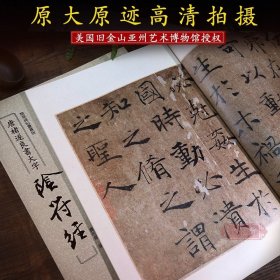 原大原迹高清拍摄
美国旧金山亚州艺术博物馆授权
唐褚遂良书大字
陰符经
姦生於
國時動必潰
知之脩之謂
之聖人